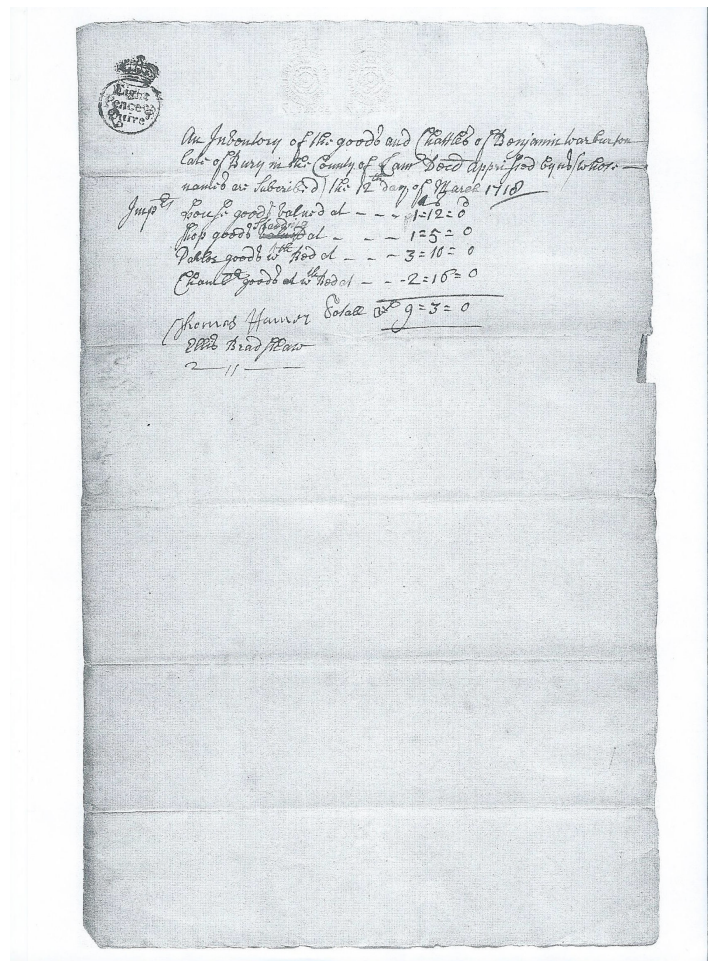 Eight
Pence p
Quire
An Inventory of the goods and Chattles of Benjamin warburton
late of Bury in the County of Lanc Decd apprised by us (whose
names are Subcribed) the 12th day of March 1718
ls s d
Imprs house goods valued at - - - 1=12=0
Shop goods at - - - 1=5=0
goods wth bed at - - - 3=10=0
Chambr goods at wth bed at - - - 2=16=0
Totall 9=3=0
Thomas Hamer
Ellis Bradshaw
2 — 11 —